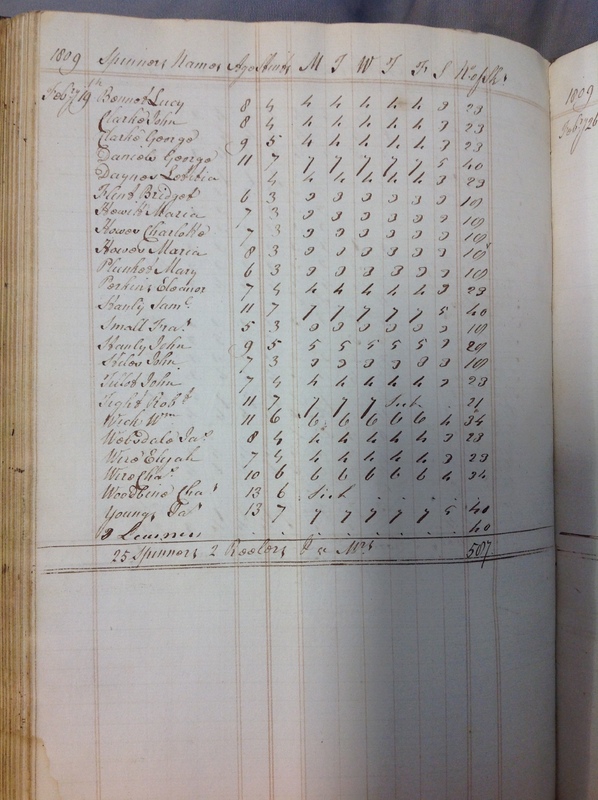 1809 Spinners Names Ages Stints M T W T F S No of Sks
Feby 19th Bennet Lucy 8 4 4 4 4 4 4 3 23
Clarke John 8 4 4 4 4 4 4 3 23
Clarke George 9 5 4 4 4 4 4 3 23
Daniels George 11 7 7 7 7 7 7 5 40
Daynes Letitia 4 4 4 4 4 4 3 23
Flint Bridget 6 3 3 3 3 3 3 3 18
Howitt Maria 7 3 3 3 3 3 3 3 18
Howes Charlotte 7 3 3 3 3 3 3 3 18
Howes Maria 8 3 3 3 3 3 3 3 18
Plunket Mary 6 3 3 3 3 3 3 3 18
Perkins Eleanor 7 4 4 4 4 4 4 3 23
Stanly Saml 11 7 7 7 7 7 7 5 40
Small Fras 5 3 3 3 3 3 3 3 18
Stanly John 9 5 5 5 5 5 5 3 28
Stiles John 7 3 3 3 3 3 3 3 18
Tillot John 7 4 4 4 4 4 4 3 23
Tight Robt 11 7 7 7 7 Sick 21
Wick Wm 11 6 6 6 6 6 6 4 34
Websdale Jas 8 4 4 4 4 4 4 3 23
Wire Elijah 7 4 4 4 4 4 4 3 23
Wire Chas 10 6 6 6 6 6 6 4 34
Woodbine Chas 13 6 Sick
Youngs Jas 13 7 7 7 7 7 7 5 40
3 Learners 40
25 Spinners 2 Reelers 587
1809
Feby 26